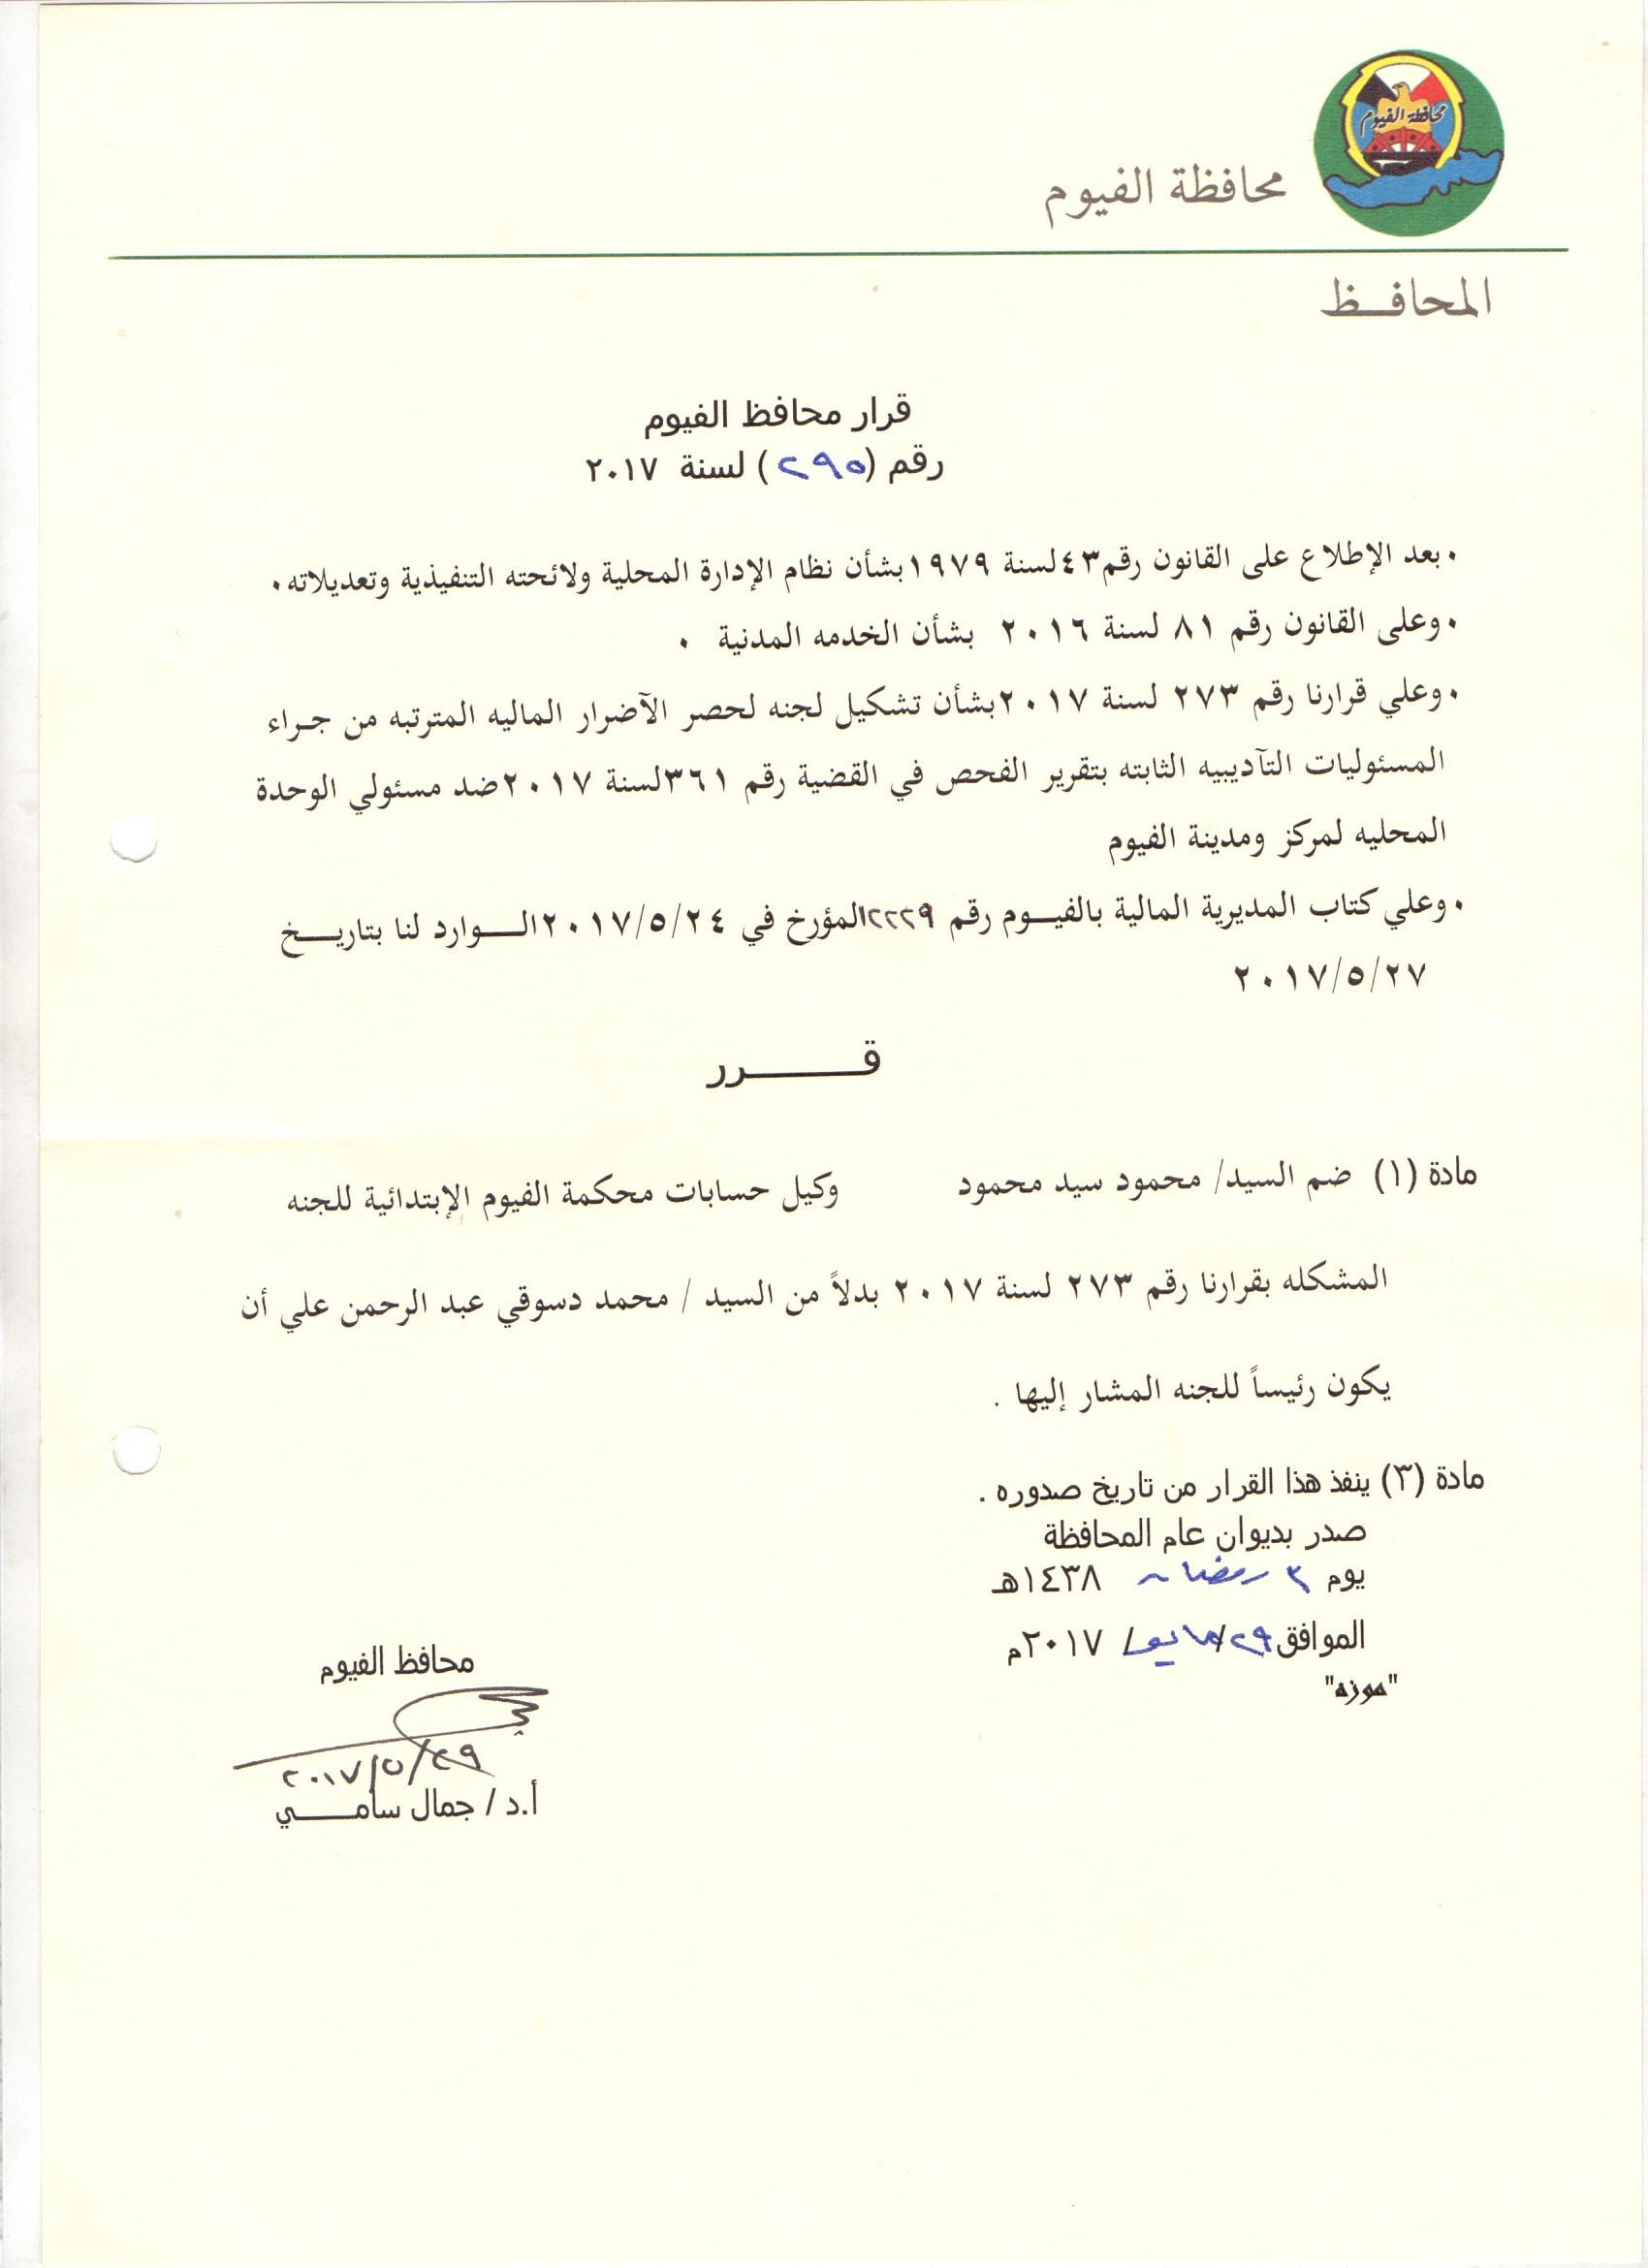 محافظة الفيوم
محافظة الفيوم
المحافــظ
قرار محافظ الفيوم
رقم (٢٩٥) لسنة ٢٠١٧
• بعد الإطلاع على القانون رقم٤٣لسنة ١٩٧٩بشأن نظام الإدارة المحلية ولائحته التنفيذية وتعديلاته •
• وعلى القانون رقم ٨١ لسنة ٢٠١٦ بشأن الخدمه المدنية •
• وعلي قرارنا رقم ٢٧٣ لسنة ٢٠١٧بشأن تشكيل لجنه لحصر الآضرار الماليه المترتبه من جـراء
المسئوليات التآديبيه الثابته بتقرير الفحص في القضية رقم ٣٦١لسنة ٢٠١٧ضد مسئولي الوحدة
المحليه لمركز ومدينة الفيوم
• وعلي كتاب المديرية المالية بالفيــوم رقم ١٢٢٢٩المؤرخ في ٢٠١٧/٥/٢٤الــوارد لنا بتاريــخ
٢٠١٧/٥/٢٧
قــــــرر
مادة (١) ضم السيد/ محمود سيد محمود وكيل حسابات محكمة الفيوم الإبتدائية للجنه
المشكله بقرارنا رقم ٢٧٣ لسنة ٢٠١٧ بدلاً من السيد / محمد دسوقي عبد الرحمن علي أن
يكون رئيساً للجنه المشار إليها .
مادة (٣) ينفذ هذا القرار من تاريخ صدوره .
صدر بديوان عام المحافظة
يوم ٣ رمضان ١٤٣٨هـ
الموافق٢٩/مايو/ ٢٠١٧م
"موزه"
محافظ الفيوم
٢٠١٧/٥/٢٩
أ.د/ جمال سامــــي